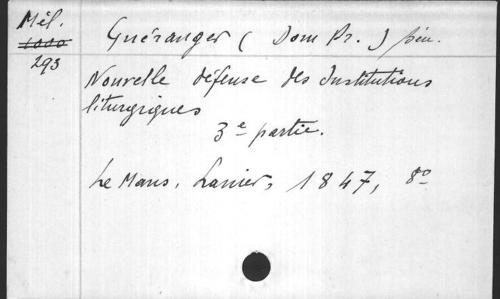 Mél.
1000
293
Guéranger (Dom Pr.)
Nouvelle défense des Institutions
liturgiques
3e partie.
Le Mans, Lanier, 1847, 8o